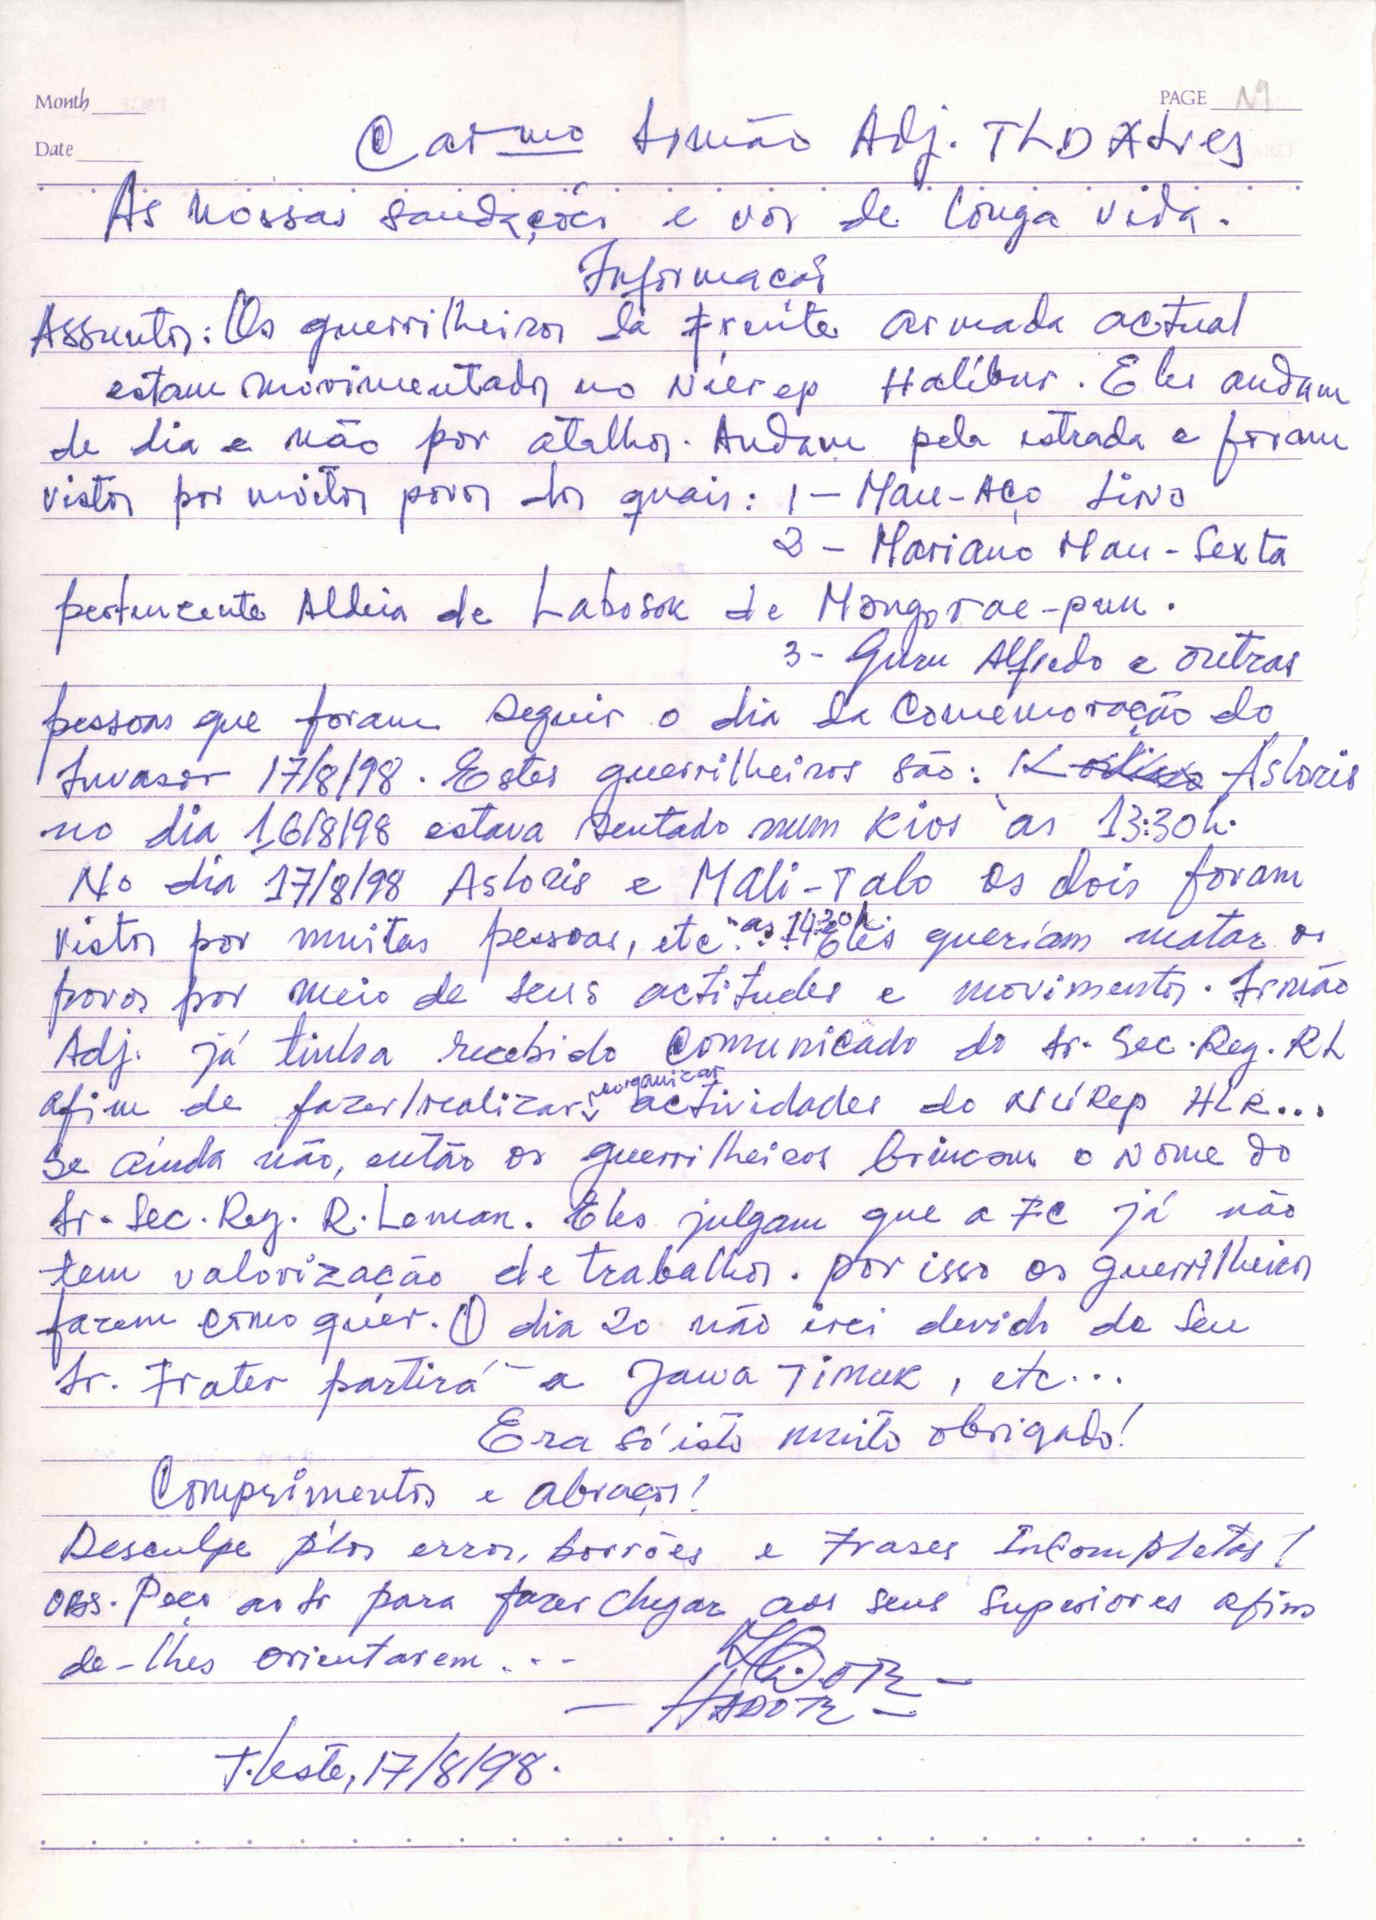 Month
PAGE N9
Date
Carmo Irmão Adj. TLD Alves
As nossas saudações e vos de longa vida.
Informacaõ
Assuntos: Os guerrilheiros da frente armada actual
estam movimentados no Núcrep Halíbur. Eles andam
de dia e não por atalhos. Andam pela estrada e foram
vistos por muitos povos dos quais: 1 - Mau-Aço Lino
2 - Mariano Mau-Sexta
pertencente Aldeia de Labosok de
3 - Guru Alfredo e outras
pessoas que foram seguir o dia da Comemoração do
Invasor 17/8/98. Estes guerrilheiros são: Asloris
no dia 16/8/98 estava sentado num kios às 13:30h.
No dia 17/8/98 Asloris e Mali-Talo os dois foram
vistos por muitas pessoas, etc. as 14:30h Eles queriam matar os
povos por meio de seus actitudes e movimentos. Irmão
Adj. já tinha recebido comunicado do Sr. Sec. Reg. RL
afim de fazer/realizar reorganizar actividades do NúRep HLR...
Se ainda não, então os guerrilheiros brincam o nome do
Sr. Sec. Reg. R. Leman. Eles julgam que a FC já não
tem valorização de trabalhos. por isso os guerrilheiros
fazem como quer. O dia 20 não irei devido de seu
Sr. Frater partirá a Jawa Timuk, etc...
Era só isto muito obrigado!
Comprimentos e abraços!
Desculpe p'los erros, borrões e Frases Incompletas!
OBS. Peço ao Sr para fazer chegar aos seus Superiores afim
de-lhes orientarem...
T.Leste, 17/8/98.